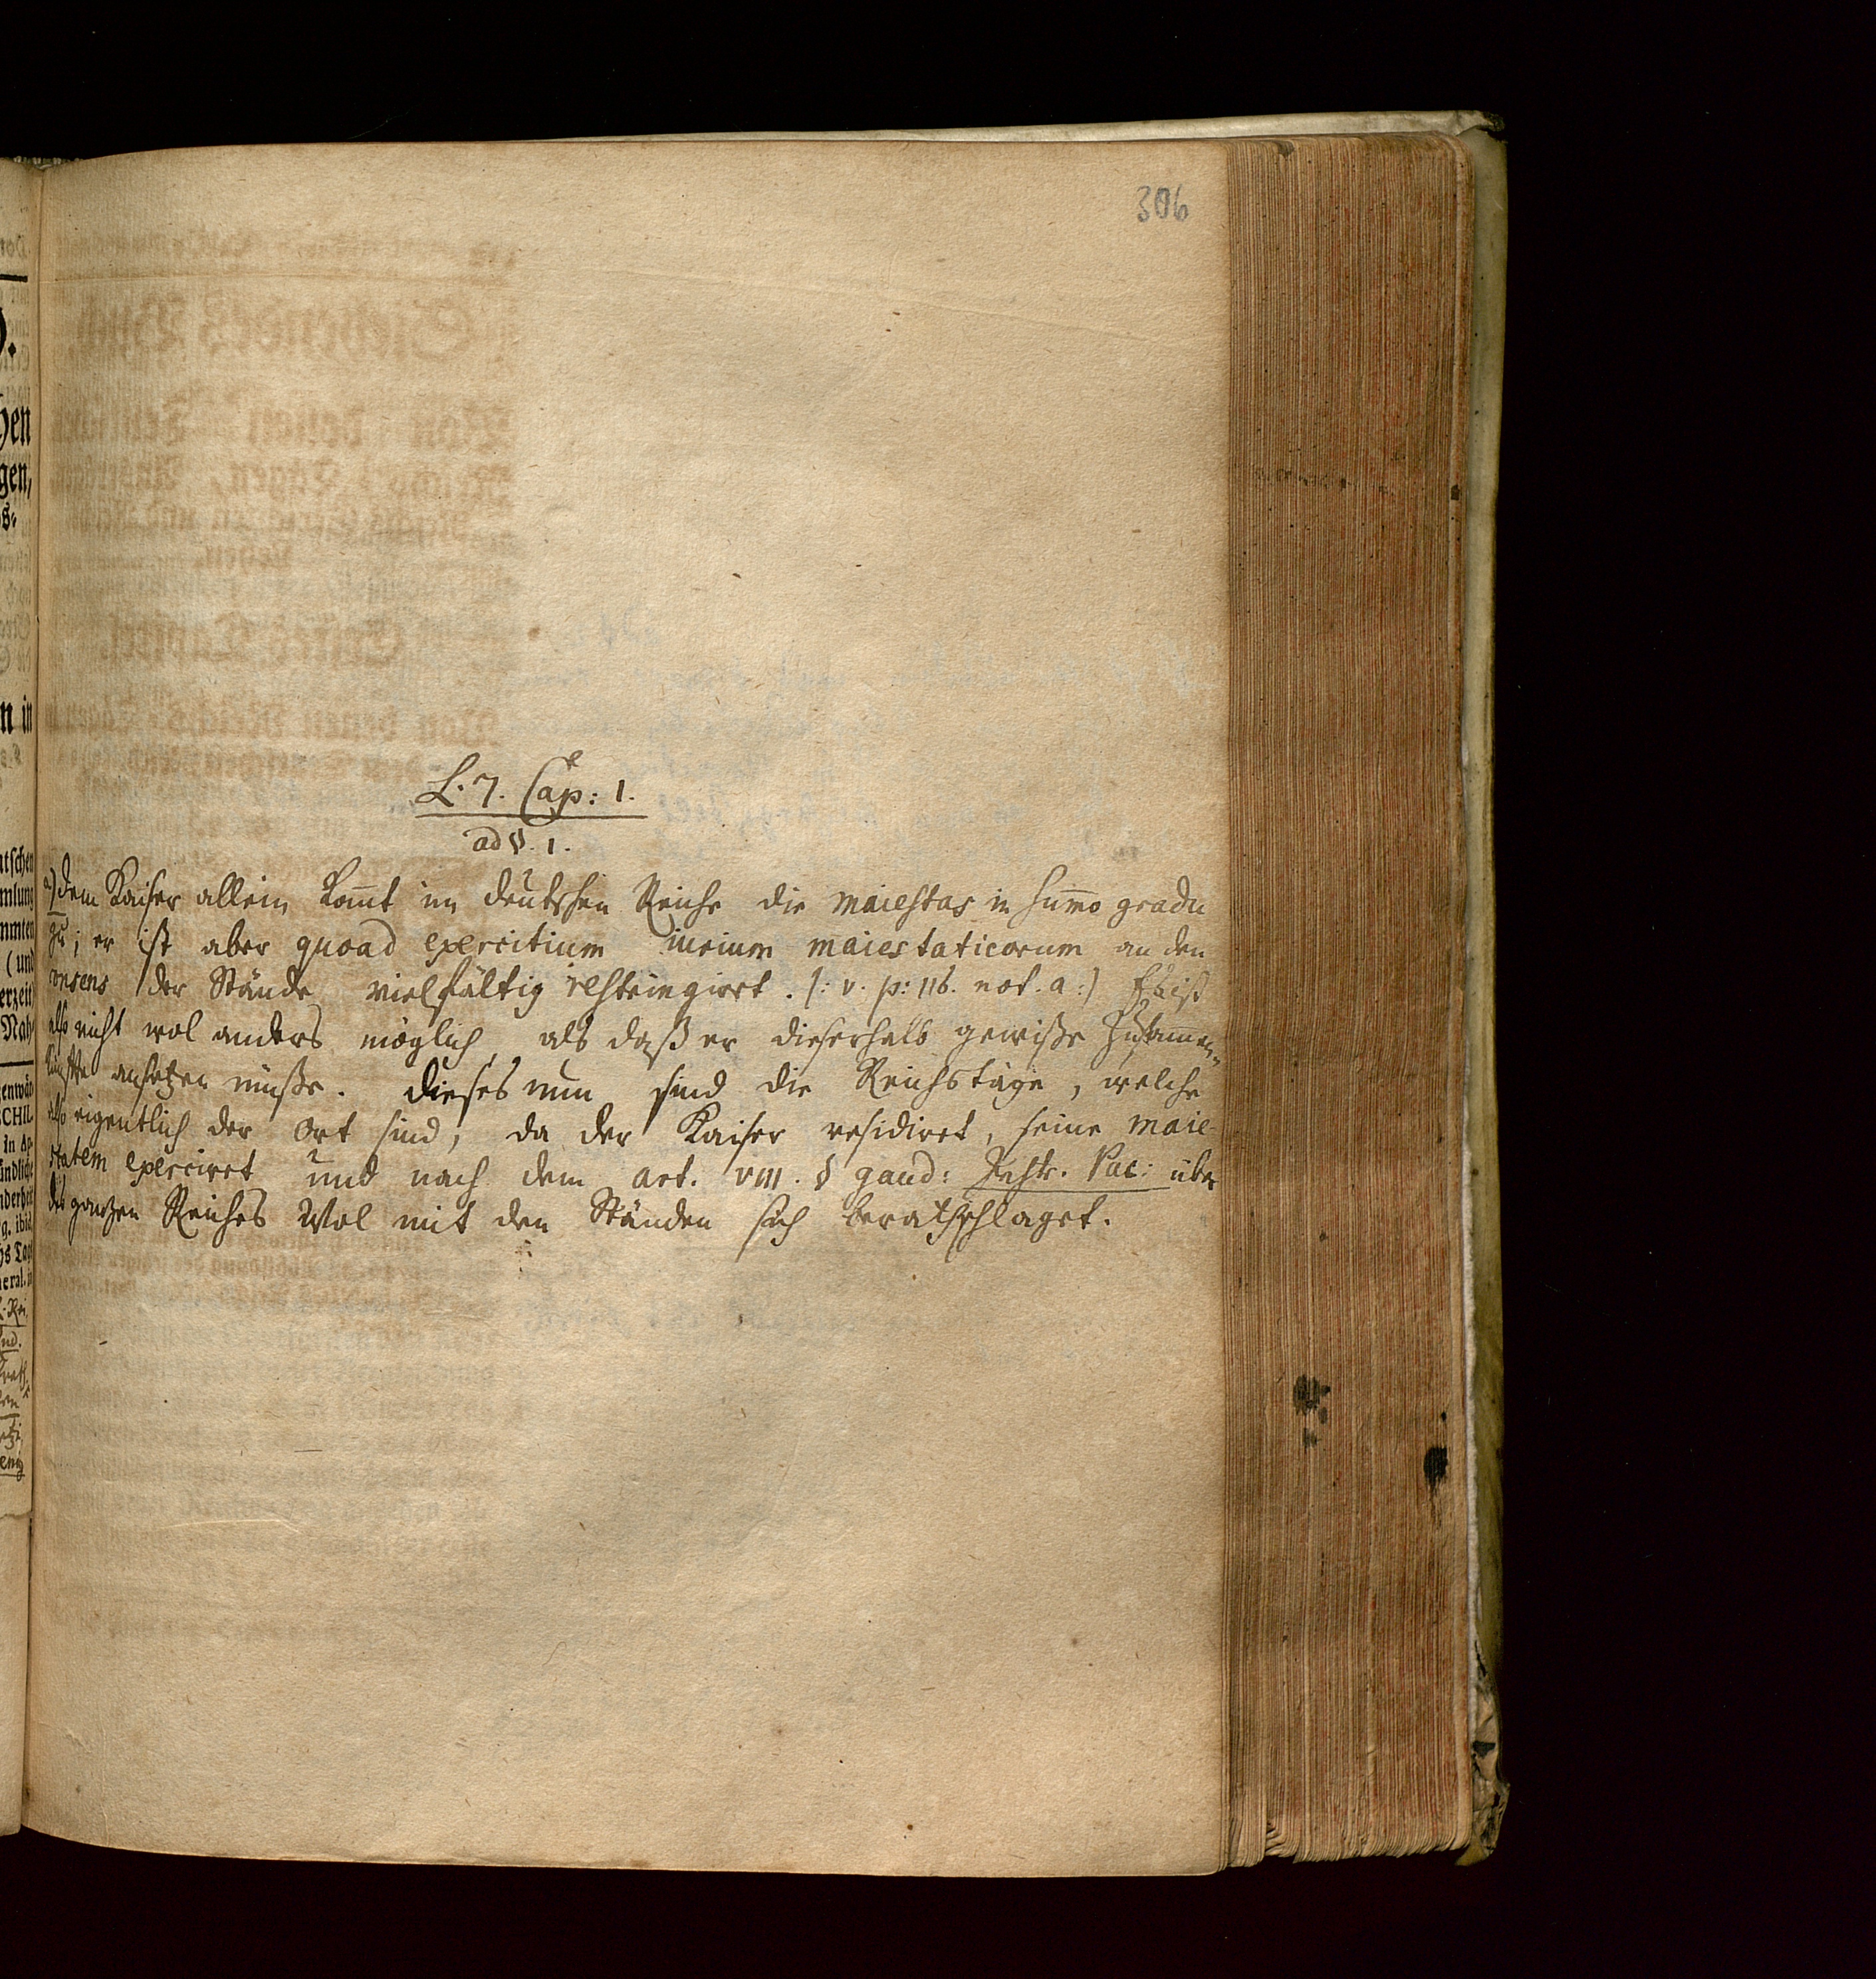 306
L. 7. Cap: 1.
ad §. 1.
a) dem Kaiser allein kom̄t im deutschen Reiche die maiestas in sum̄o gradu
zu; er ist aber quoad exercitium iurium maiestaticorum an den
consens der Stände vielfältig restringirt. (: v. p: 116. not. a :) Es ist
also nicht wol anders möglich als daß er dieserhalb gewiße Zusammen-
künfte ansetzen müße. dieses nun sind die Reichstäge, welche
also eigentlich der Ort sind, da der Kaiser residiret, seine maie-
statem exerciret und nach dem art. VIII. § gaud: Instr. Pac: über
des ganzen Reiches Wol mit den Ständen sich berathschlaget.